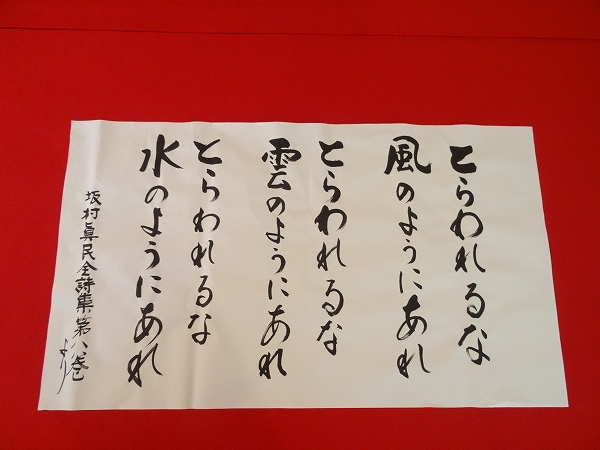 とらわれるな
風のようにあれ
とらわれるな
雲のようにあれ
とらわれるな
水のようにあれ
坂村眞民全詩集第八巻
より